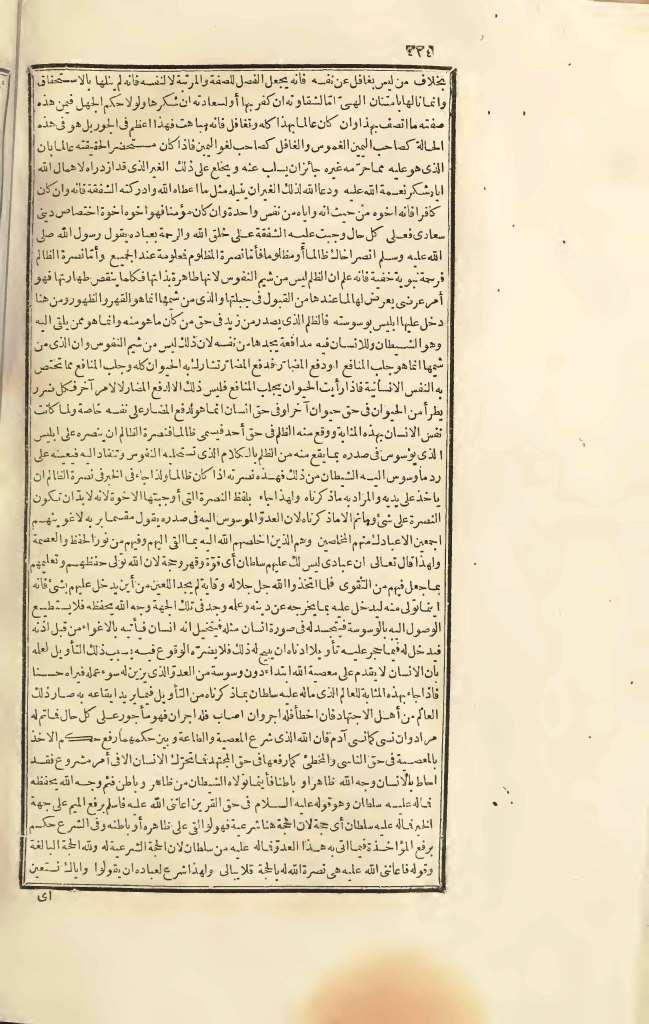 ٣٣٤
بخلاف من ليس بغافل عن نفسه فانه يجعل الفصل للصفة والمرتبة لا لنفسه فانه لم ينلها بالاستحقاق
وانما نالها بامتنان الهى امّا لشقاوته ان كفر بها أو لسعادته ان شكرها ولولا حكم الجهل فيمن هذه
صفته ما اتصف بهذا وان كان عالما بهذا كله وتغافل فانه يباهت فهذا أعظم فى الجور بل هو فى هذه
الحالة كصاحب اليمين الغموس والغافل كصاحب لغو اليمين فاذا كان مستحضر الحقيقته عالما بان
الذى هو عليه مما حرّمه غيره جائز ان يسلب عنه ويخلع على ذلك الغير الذى قد ازدراه لاهمال الله
اياه يشكر نعمة الله عليه ودعا الله لذلك الغير ان ينيله مثل ما أعطاه الله وادركته الشفقة فانه وان كان
كافرا فانه اخوه من حيث انه واياه من نفس واحدة وان كان مؤمنا فهو اخوه اخوة اختصاص دينى
سعادى فعلى كل حال وجبت عليه الشفقة على خلق الله والرحمة بعباده يقول رسول الله صلى
الله عليه وسلم انصر اخاك ظالما أو مظلوما فأمّا نصرة المظلوم فمعلومة عند الجميع وأمّا نصرة الظالم
فرحمة نبوية خفية فانه علم ان الظلم ليس من شيم النفوس لانها طاهرة بذاتها فكل ما ينقص طهارتها فهو
أمر عرضى يعرض لها لما عندها من القبول فى جبلتها والذى من شيمها انما هو القهر والظهور ومن هنا
دخل عليها ابليس بوسوسته فالظلم الذى يصدر من زيد فى حق من كان ما هو منه وانما هو ممن يأتى اليه
وهو الشيطان وللانسان فيه مدافعة يجدها من نفسه لان ذلك ليس من شيم النفوس وان الذى من
شيمها انما هو جلب المنافع او دفع المضارّ فدفع المضارّ تشارك به الحيوان كله وجلب المنافع مما تختص
به النفس الانسانية فاذا رأيت الحيوان يجلب المنافع فليس ذلك الا لدفع المضار لا لامر آخر فكل ضرر
يطرأ من الحيوان فى حق حيوان آخر او فى حق انسان انما هو لدفع المضار على نفسه خاصة ولما كانت
نفس الانسان بهذه المثابة ووقع منه الظلم فى حق أحد فيسمى ظالما فنصرة الظالم ان ينصره على ابليس
الذى يوسوس فى صدره بما يقع منه من الظلم بالكلام الذى تستحليه النفوس وتنقاد اليه فيعينه على
رد ما وسوس اليه الشيطان من ذلك فهذه نصرته اذا كان ظالما ولذا جاء فى الخبر فى نصرة الظالم ان
ياخذ على يديه والمراد به ما ذكرناه ولهذا جاء بلفظ النصرة التى أوجبتها الاخوة لانه لا بدّ ان تكون
النصرة على شئ وما ثم الا ما ذكرناه لان العدوّ الموسوس اليه فى صدره يقول مقسما بربه لاغوينهم
اجمعين الا عبادك منهم المخلصين وهم الذين اخلصهم الله اليه بما التى اليهم وفيهم من نور الحفظ والعصمة
ولهذا قال تعالى ان عبادى ليس لك عليهم سلطان أى قوّة وقهر وحجة لان الله تولى حفظهم وتعليمهم
بما جعل فيهم من التقوى فلما اتخذوا الله جل جلاله وقاية لم يجد اللعين من أين يدخل عليهم بشئ فانه
اينما تولى منه ليدخل عليه بما يخرجه عن دينه وعلمه وجد فى تلك الجهة وجه الله يحفظه فلا يستطيع
الوصول اليه بالوسوسة فيتجسد له فى صورة انسان مثله فيتخيل انه انسان فيأتيه بالاغواء من قبل اذنه
فيدخل له فيما حجر عليه تأويلا ادناه ان يبيح له ذلك فلا يضرّه الوقوع فيه بسبب ذلك التأويل لعلمه
بان الانسان لا يقدم على معصية الله ابتداء دون وسوسة من العدوّ الذى يزين له سوء عمله فيراه حسنا
فاذا جاء بهذه المثابة للعالم الذى ماله عليه سلطان بما ذكرناه من التأويل فيما يريد ايقاعه به صار ذلك
العالم من أهل الاجتهاد فان اخطأ فله اجر وان اصاب فله اجران فهو مأجور على كل حال فما تم له
مراد وان نسى كما نسى آدم فان الله الذى شرع المعصية والطاعة وبين حكمهما رفع حكم الاخذ
بالمعصية فى حق الناسى والمخطئ كما رفعها فى حق المجتهد فما تحرّك الانسان الا فى أمر مشروع فقد
احاط بالانسان وجه الله ظاهرا وباطنا فأينما تولاه الشيطان من ظاهر وباطن فثم وجه الله يحفظه
فماله عليه سلطان وهو قوله عليه السلام فى حق القرين اعاننى الله عليه فاسلم برفع الميم على جهة
الخبر فماله عليه سلطان أى حجة لان الحجة هنا شرعية فهو لو التى على ظاهره أو باطنه وفى الشرع حكم
برفع المؤاخذة فيما اتى به هذا العدوّ فماله عليه من سلطان لان الحجة الشرعية له ولله الحجة البالغة
وقوله فاعاننى الله عليه هى نصرة الله له بالحجة فلا يبالى ولهذا شرع لعباده ان يقولوا واياك نستعين
اى